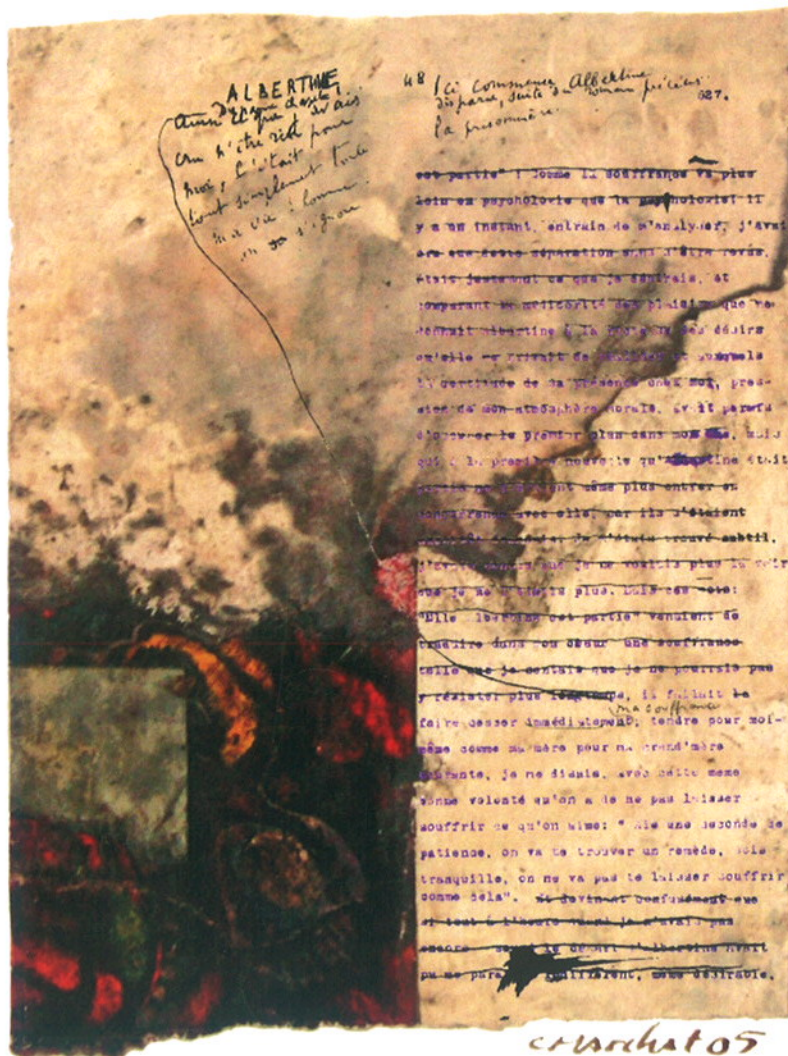 ALBERTINE
Disparue chapitre I
Ainsi ce que j'avais
cru n'être rien pour
moi, c'était pour
tout simplement toute
ma vie ! comme
on s'ignore
48 Ici commence Albertine
disparue, suite du roman précédent
la prisonnière.
627.
est partie" ! Comme la souffrance va plus
loin en psychologie que la psychologie! il
y a un instant, entrain de m'analyser, j'avai
cru que cette séparation sans s'être revus,
était justement ce que je désirais, et
comparant la médiocrité des plaisirs que me
donnait Albertine à la des désirs
qu'elle me privait de réaliser et auxquels
la certitude de sa présence chez moi, pres-
sion de mon atmosphère morale, avait permis
d'occuper le premier plan dans mon mais
qui à la première nouvelle qu'Albertine était
même plus entrer en
concurrence avec elle, car ils s'étaient
je m'étais trouvé subtil,
que je ne voulais plus la voir
que je ne l'aimais plus. Mais ces mots:
"Elle Albertine est partie" venaient de
traduire dans mon coeur une souffrance
telle que je sentais que je ne pourrais pas
y résister plus longtemps, il fallait la
ma souffrance
faire cesser immédiatement; tendre pour moi-
même comme ma mère pour ma grand'mère
mourante, je me disais, avec cette meme
bonne volonté qu'on a de ne pas laisser
souffrir ce qu'on aime: " Aie une seconde de
patience, on va te trouver un remède, sois
tranquille, on ne va pas te laisser souffrir
comme cela". Et devinant confusément que
si tout à l'heure quand je n'avais pas
encore sonné le départ d'Albertine avait
pu me para indifférent, même désirable,
05